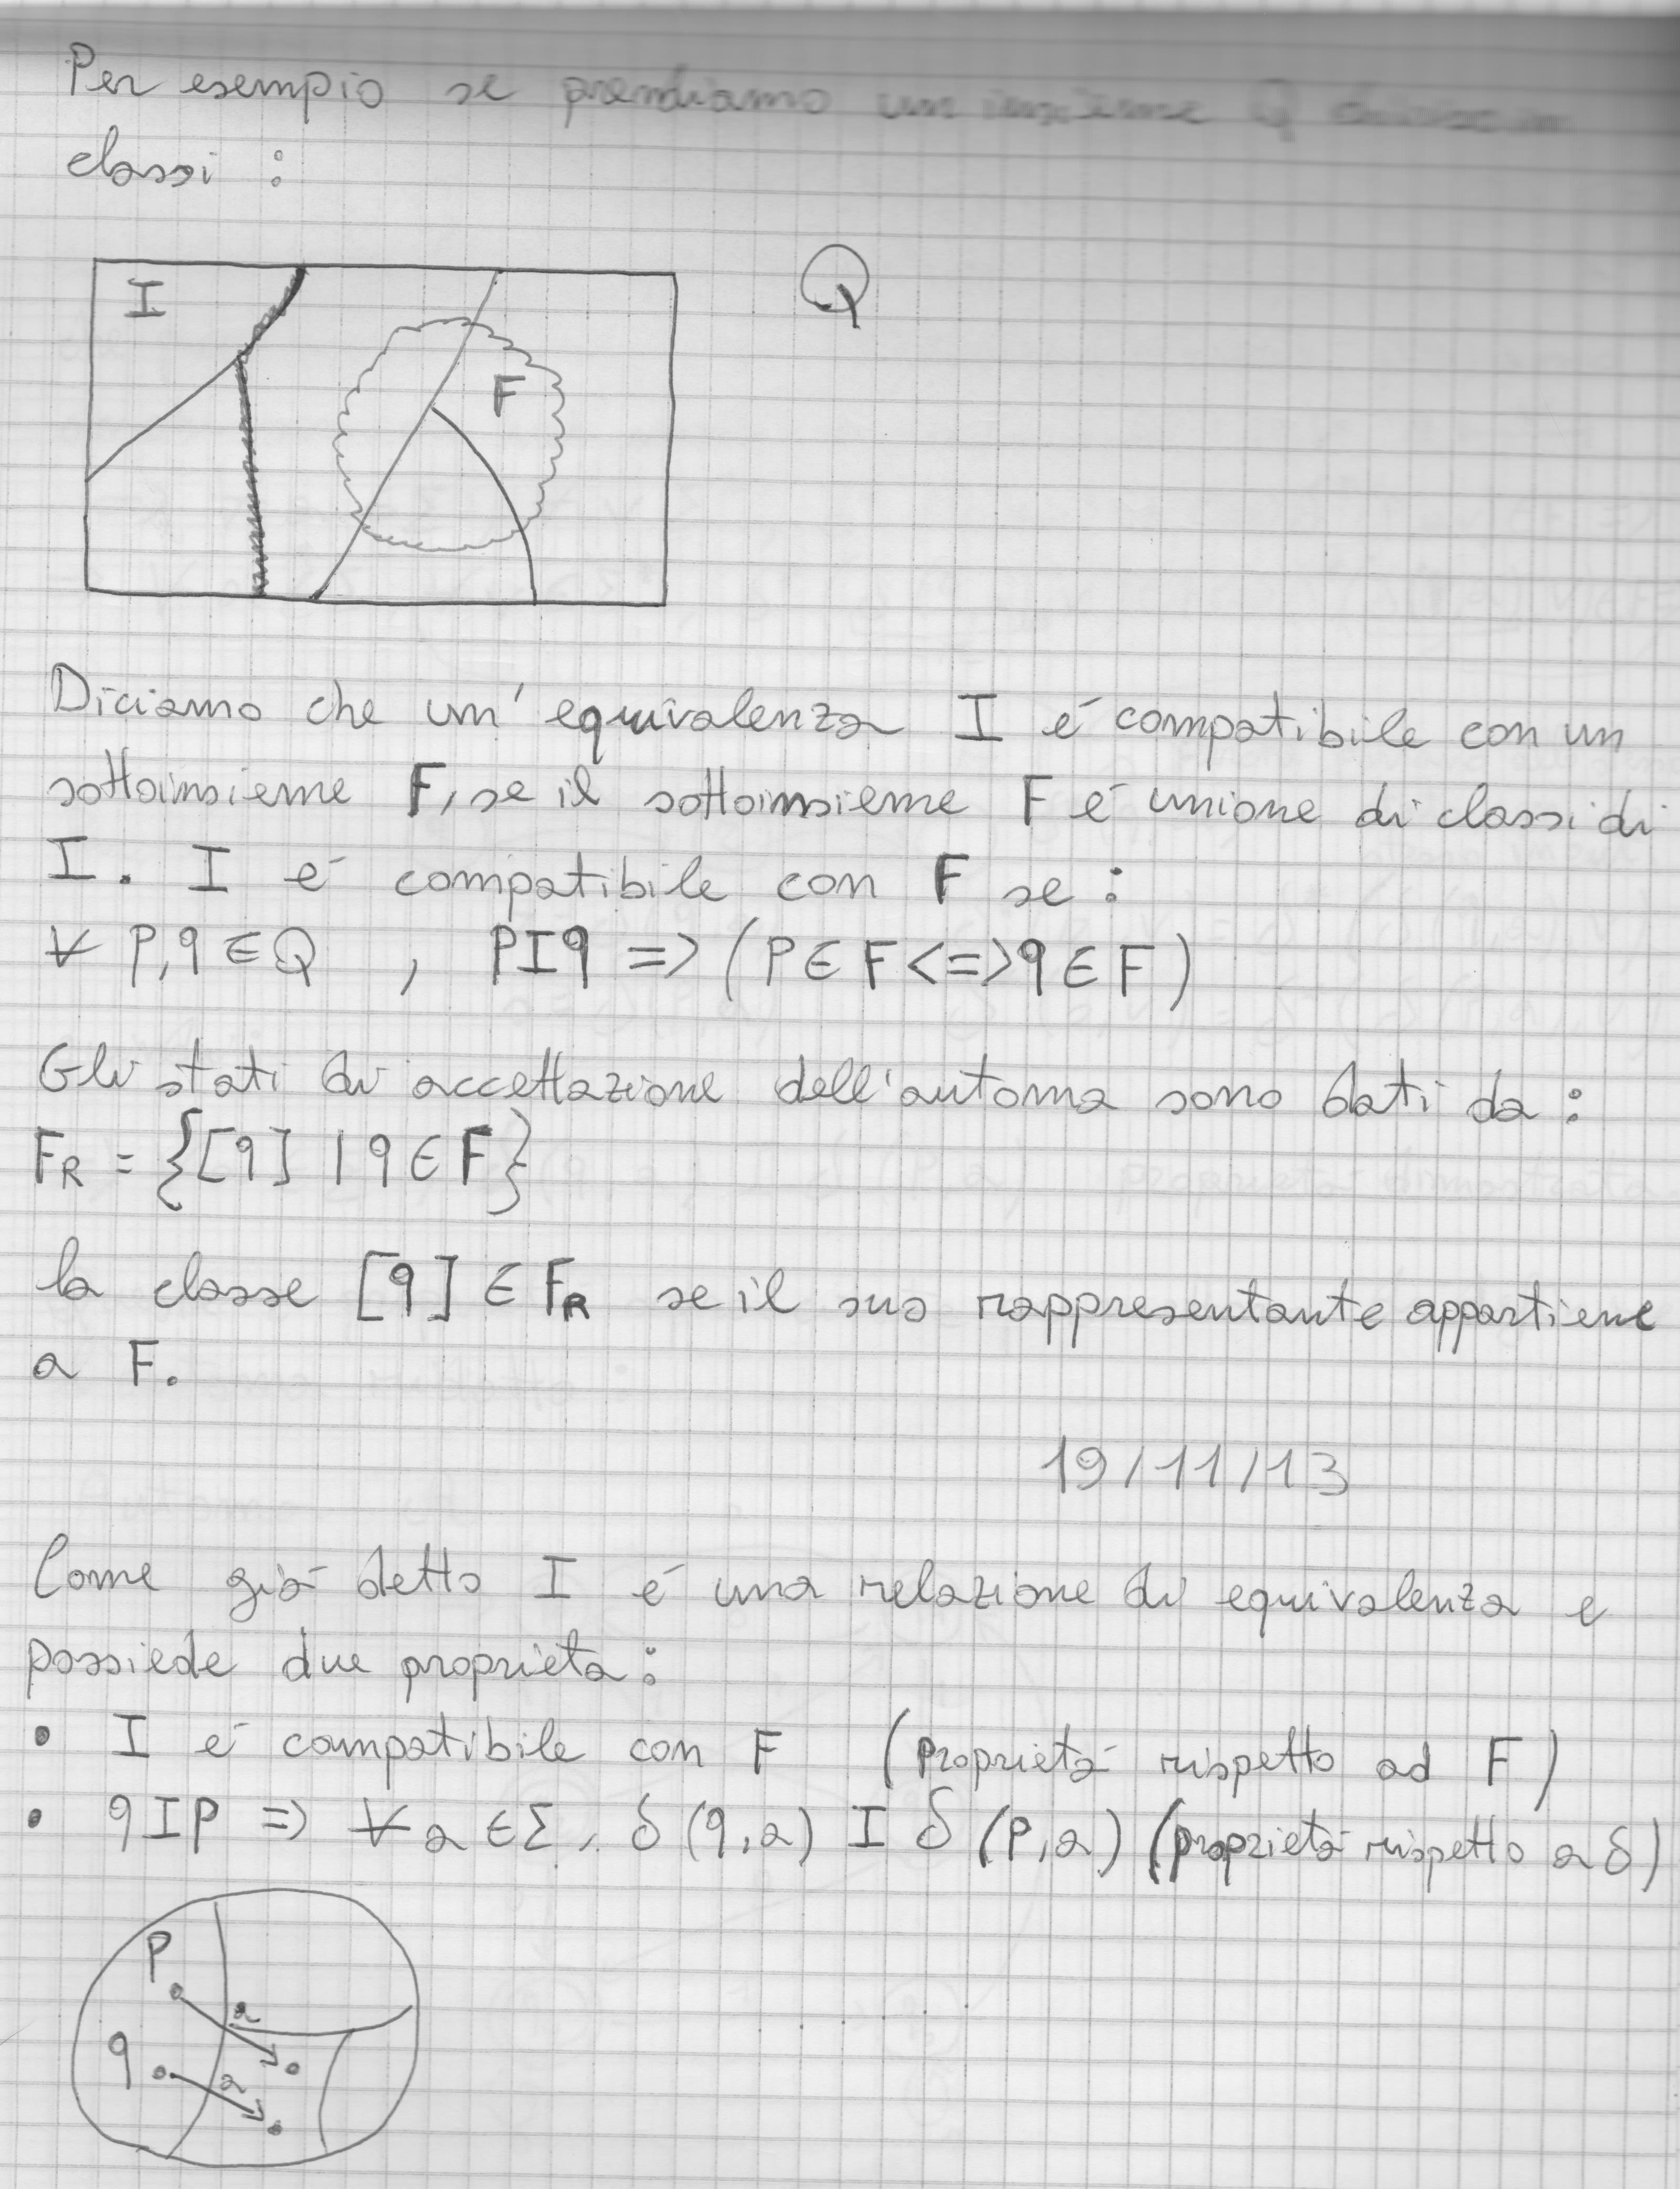 Per esempio se prendiamo un insieme Q
classi :
I
Q
F
Diciamo che un' equivalenza I é compatibile con un
sottoinsieme F, se il sottoinsieme F é unione di classi di
I. I é compatibile con F se :
∀ P,q ∈ Q , PIq => (P ∈ F <=> q ∈ F)
Gli stati di accettazione dell'automa sono dati da :
FR = {[q] | q ∈ F}
la classe [q] ∈ FR se il suo rappresentante appartiene
a F.
19/11/13
Come giá detto I é una relazione di equivalenza e
possiede due proprietá :
• I é compatibile con F (Proprietá rispetto ad F)
• qIP => ∀ a ∈ Σ, δ (q,a) I δ (P,a) (proprietá rispetto a δ)
P
a
q
a